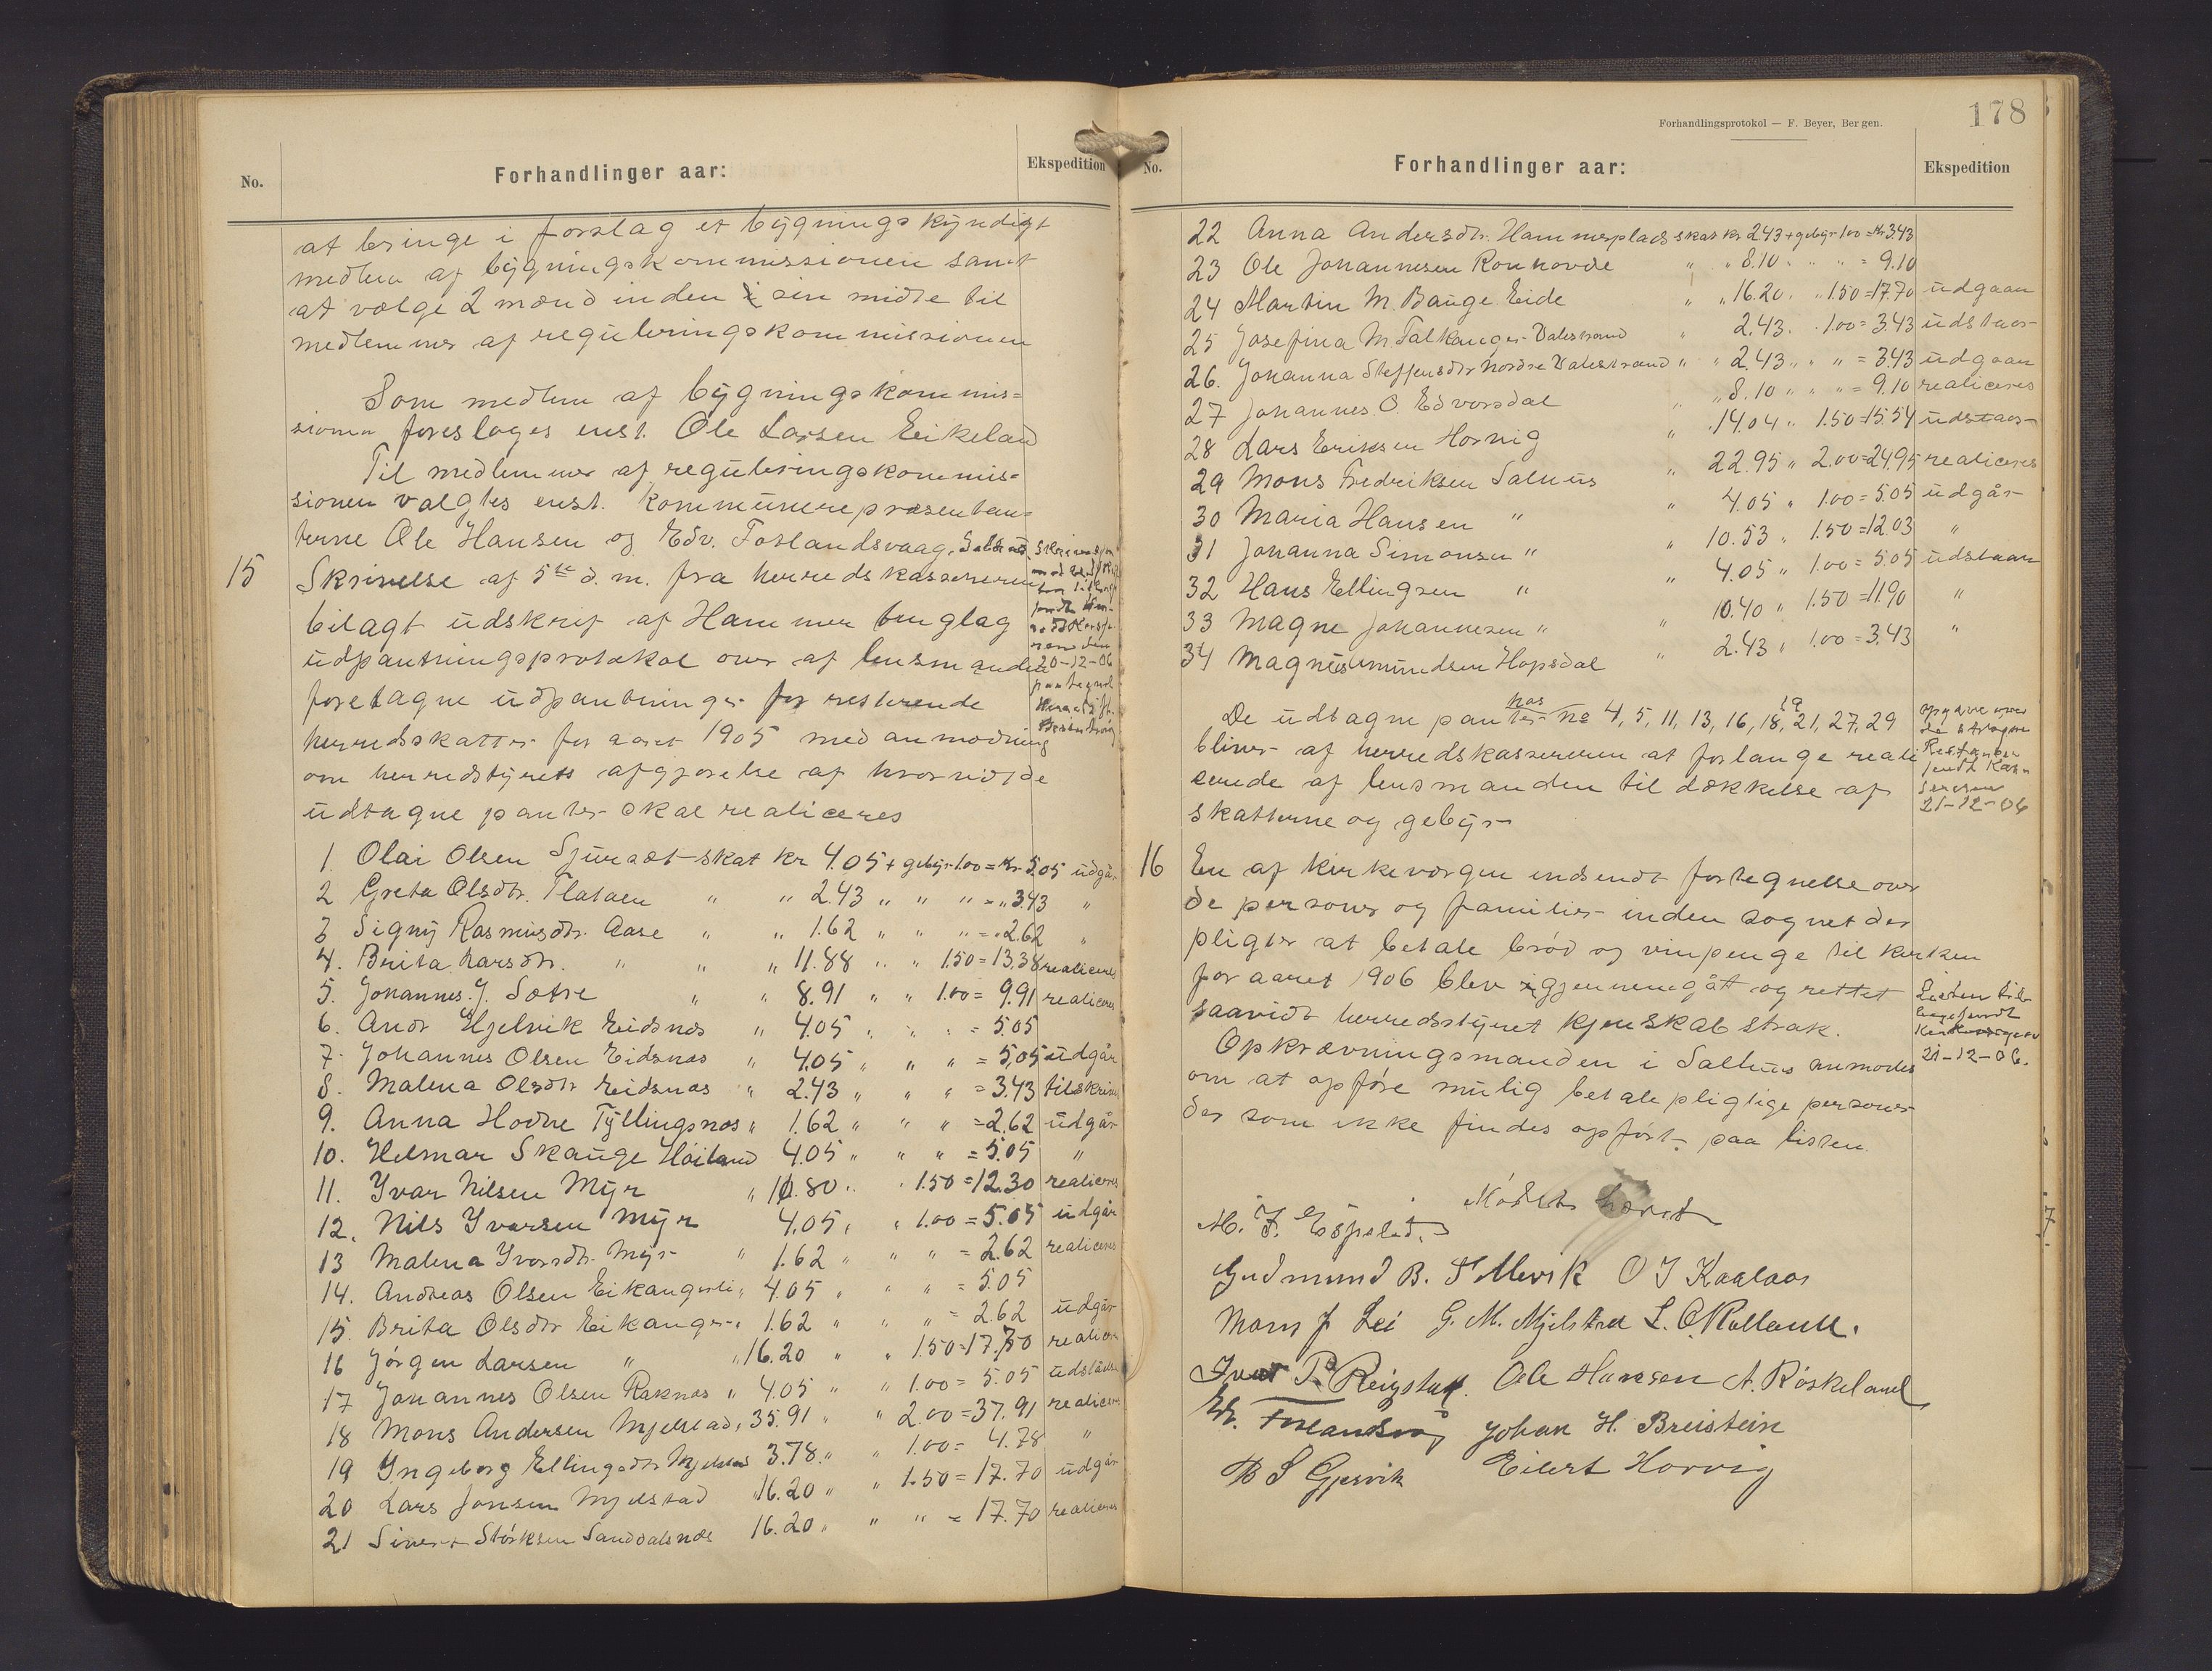 No.
Forhandlinger aar:
Ekspedition
at bringe i forslag et bygningskyndigt
medlem af bygningskommissionen samt
at vælge 2 mænd inden sin midte til
medlemmer af reguleringskommissionen
Som medlem af bygningskommis=
sionen foreslages enst. Ole Larsen Eikeland
Til medlemmer af reguleringskommis=
sionen valgtes enst. kommunerepræsentan=
terne Ole Hansen og Edv. Foslandsvaag.
15 Skrivelse af 5te d.m. fra herredskassereren
bilagt udskrif af Hammer tinglag
udpantningsprotokol over af lensmanden
foretagne udpantninger for resterende
herredskatter for aaret 1905 med anmodning
om herredstyrets afgjørelse af hvorvidt de
udtagne panter skal realiceres
20-12-06
1. Olai Olsen Sjursæt skat kr 4.05 + gebyr 1.00 = Kr. 5.05 udgår
2 Greta Olsdtr. Flataen " " 2.43 " " " = " 3.43 "
3 Signy Rasmusdtr. Aase " " 1.62 " " " = " 2.62 "
4. Brita Larsdtr. " " " 11.88 " " 1.50 = 13.38 realiceres
5. Johannes J. Sætre " " 8.91 " " 1.00 = 9.91 realiceres
6. Andr Hjelvik Eidsnes " 4.05 " " " = 5.05
7. Johannes Olsen Eidsnæs " 4.05 " " " = 5.05 udgår
8. Malena Olsdtr Eidsnæs " 2.43 " " " = 3.43 tilskrives
9. Anna Hodne Tyllingsnæs " 1.62 " " " = 2.62 udgår
10. Helmar Skauge Høiland 4.05 " " " = 5.05 "
11. Ivar Nilsen Myr " 10.80 " " 1.50 = 12.30 realiceres
12. Nils Ivarsen Myr 4.05 " " 1.00 = 5.05 udgår
13 Malena Ivarsdtr Myr " 1.62 " " " = 2.62 realiceres
14. Andreas Olsen Eikangerli " 4.05 " " " = 5.05
15. Brita Olsdtr Eikanger " 1.62 " " " = 2.62 udgår
16 Jørgen Larsen " " 16.20 " " 1.50 = 17.70 realiceres
17 Johannes Olsen Raknæs " 4.05 " " 1.00 = 5.05 udstaar
18 Mons Andersen Mjelstad " 35.91 " " 2.00 = 37.91 realiceres
19 Ingeborg Ellingsdtr Mjelstad 3.78 " " 1.00 = 4.78 "
20 Lars Jonsen Mjelstad " 16.20 " " 1.50 = 17.70 udgår
21 Sivert Størksen Sanddalsnæs 16.20 " " " = 17.70 realiceres
178
Forhandlingsprotokol — F. Beyer, Bergen.
No.
Forhandlinger aar:
Ekspedition
22 Anna Andersdtr. Hammersplads skat kr 2.43 + gebyr 1.00 = Kr 3.43
23 Ole Johannesen Ronhovde " " 8.10 " " " = 9.10
24 Martin M. Bauge Eide " " 16.20 " " 1.50 = 17.70 udgaar
25 Josefina M. Falkanger Valestrand " 2.43 " 1.00 = 3.43 udstaar
26. Johanna Steffensdtr Nordre Valestrand " " 2.43 " " " = 3.43 udgaar
27 Johannes O. Edvarsdal " " 8.10 " " " = 9.10 realiceres
28 Lars Eriksen Horvig " 14.04 " 1.50 = 15.54 udstaar
29 Mons Fredriksen Salhus " 22.95 " 2.00 = 24.95 realiceres
30 Maria Hansen " " 4.05 " 1.00 = 5.05 udgår
31 Johanna Simonsen " " 10.53 " 1.50 = 12.03 "
32 Hans Ellingsen " " 4.05 " 1.00 = 5.05 udstaar
33 Magne Johannesen " " 10.40 " 1.50 = 11.90 "
34 Magnus Hopsdal " 2.43 " 1.00 = 3.43 "
De udtagne panter hos no 4, 5, 11, 13, 16, 18, 19, 21, 27, 29
bliver af herredskassereren at forlange reali
cerede af lensmanden til dækkelse af
skatterne og gebyr
21-12-06
16 En af kirkeværgen indsendt fortegnelse over
de personer og familier inden sognet der
pligter at betale brød og vinpenge til kirken
for aaret 1906 blev gjennemgått og rettet
saavidt herredsstyret kjenskab strak.
Opkrævningsmanden i Salhus anmodes
om at opføre mulig betalepligtige personer
der som ikke findes opført paa listen.
Listen til-
bagesendt
Kirkevergen
21-12-06.
Mødet hævet
M. J. Espelid.
Gudmund B. Tellevik O J Kaalaas
Mons J Lei G. M. Mjelstad L. O. Rolland.
Ivar P. Reigstad. Ole Hansen A. Røskeland
Johan H. Breistein
B S Gjesvik Eilert Horvig